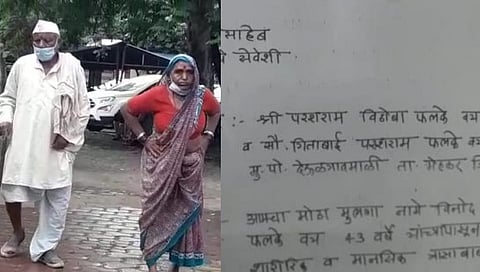 साहेब
सेवेशी
:- श्री परशराम विठोबा फलके वय
व सौ. गिताबाई परशराम फलके वय
मु. पो. देऊळगावमाळी ता. मेहकर
आमचा मोठा मुलगा नामे विनोद
फलके वय 43 वर्षे यांच्यापासून
शारीरिक व मानसिक त्रासाबा